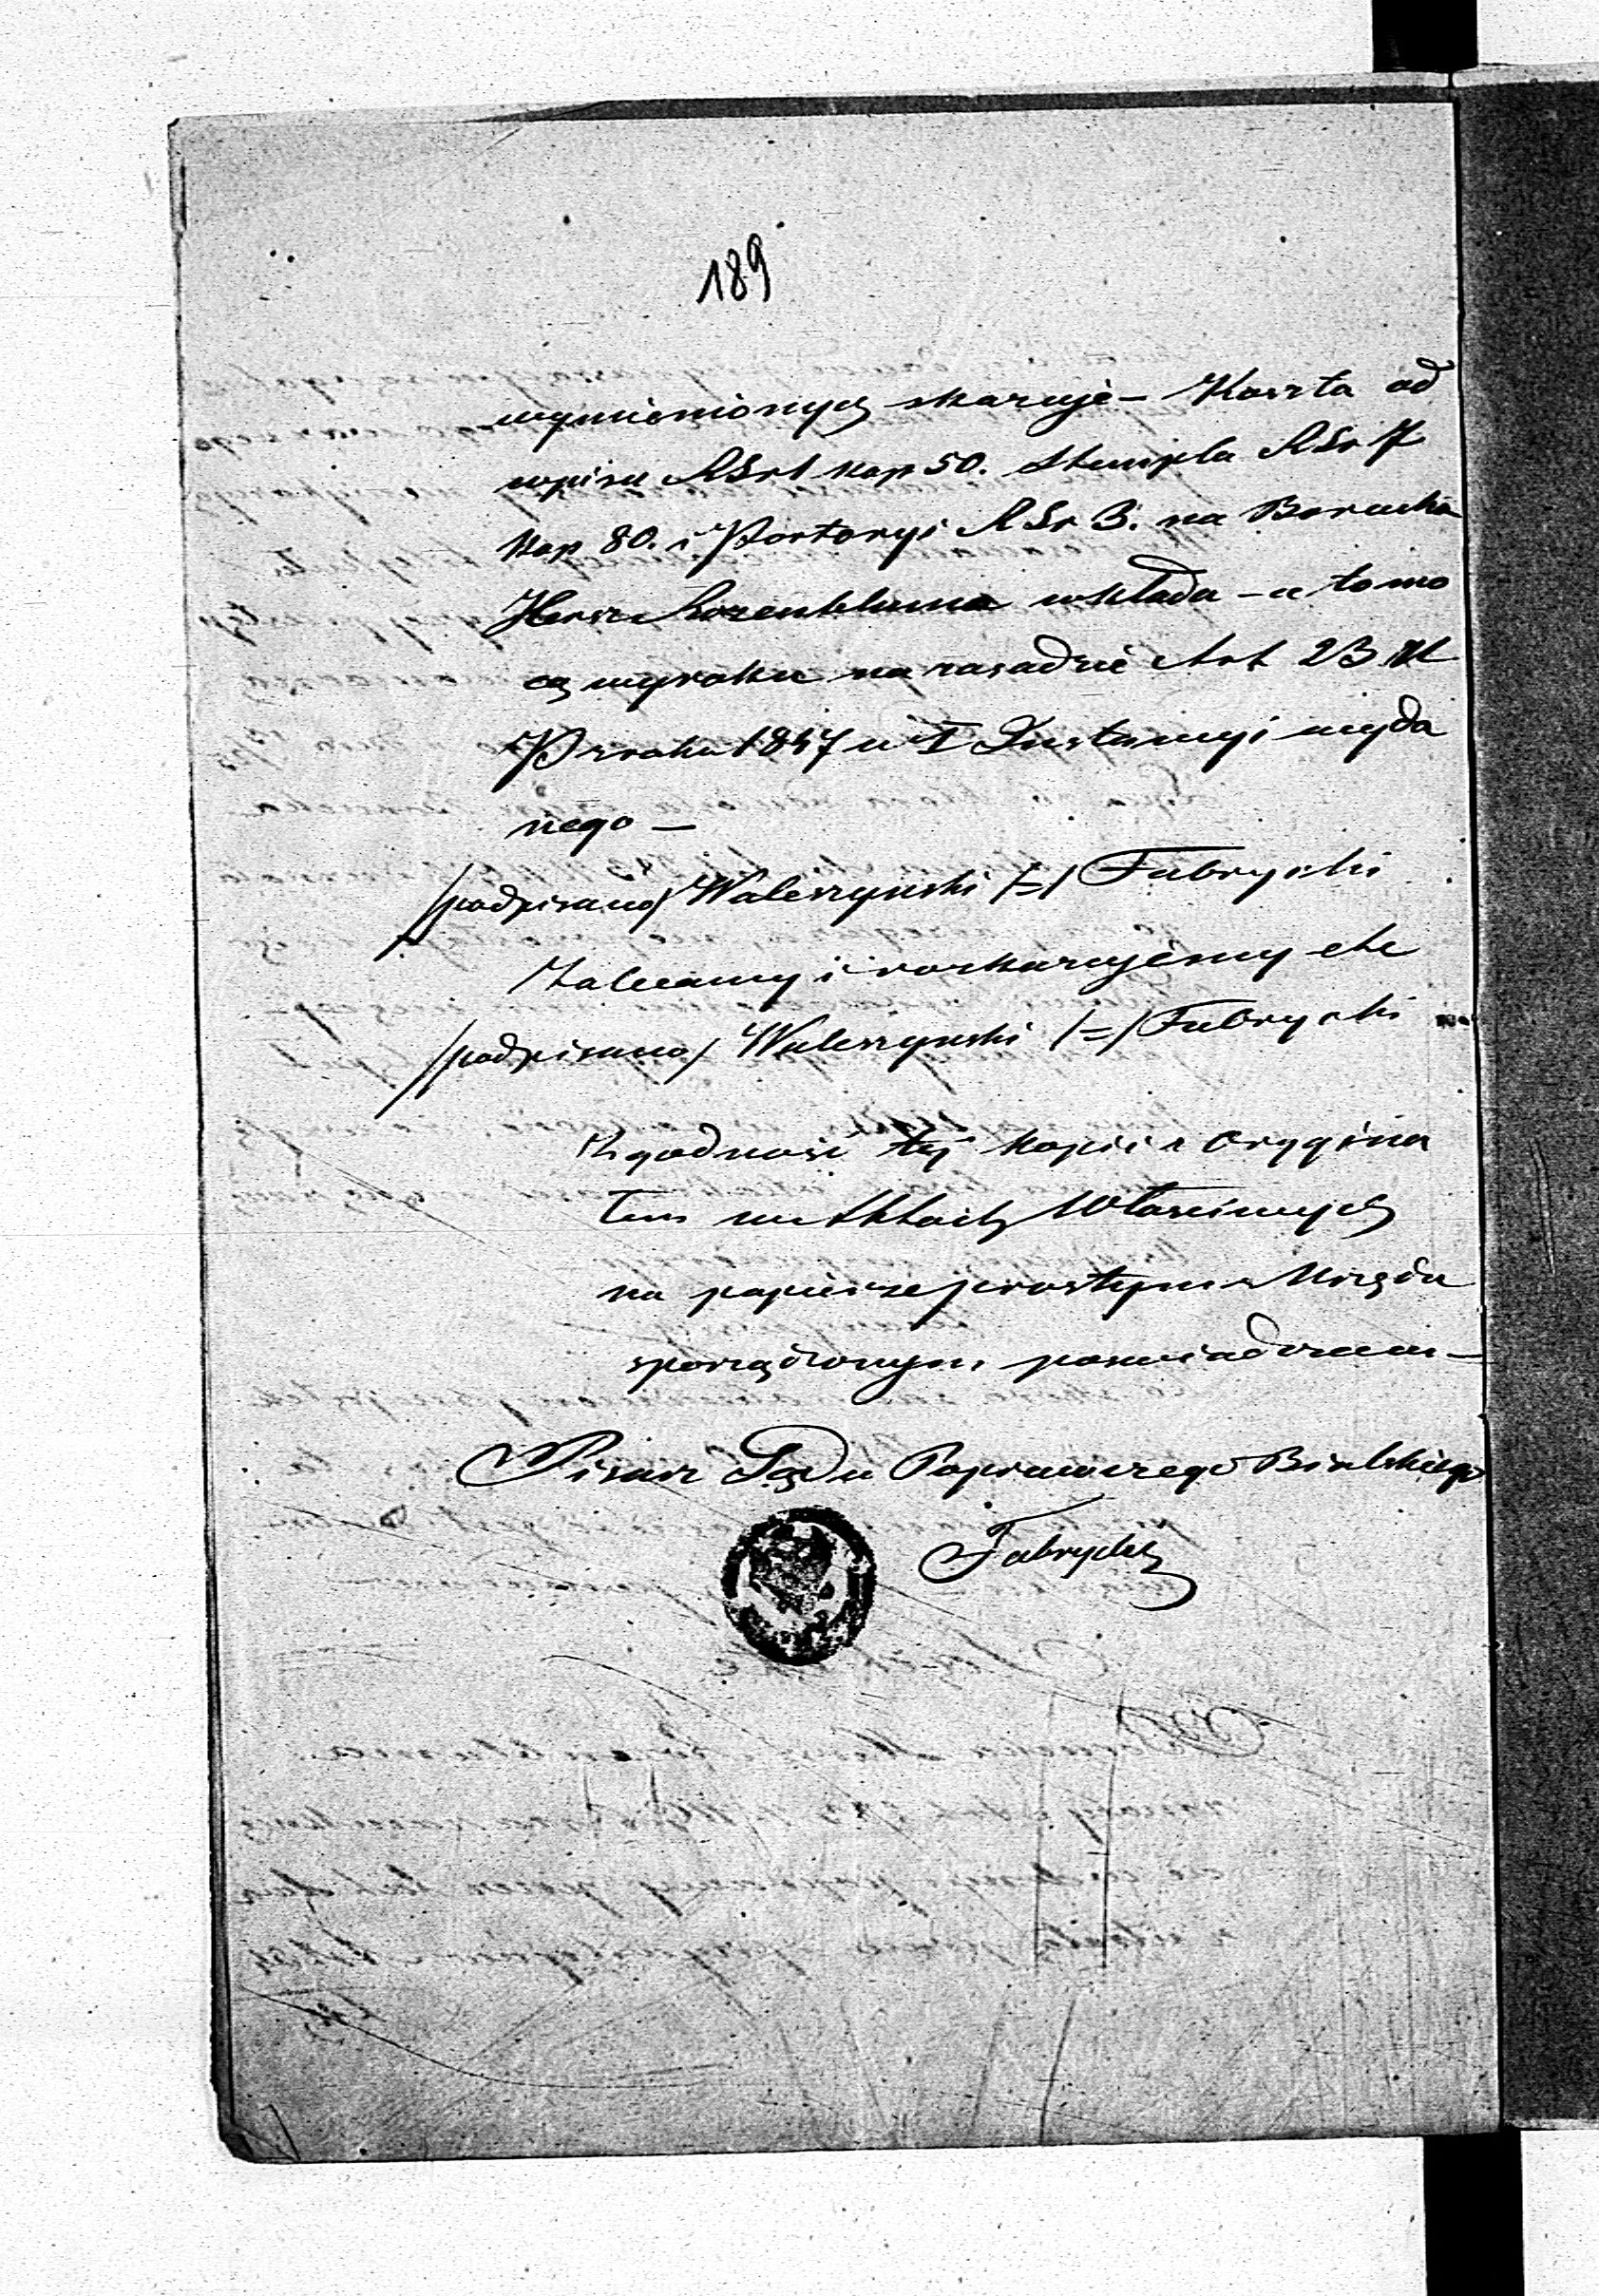 189
wymienionych skazuje – Koszta od
wpisu RSr 1 kop 50. Stempla RSr 7
kop 80. i Portoryi RSr 3. na Borucha
Hersza Rozenbluma wkłada – a to mo
cą wyroku na zasadzie Art 23 KK
P z roku 1847 w I Instancyi wyda
nego –
/podpisano/ Waleszynski /=/ Fabrycki
Zalecamy i rozkazujemy etc
/podpisano/ Waleszynski /=/ Fabrycki
Zgodność tej kopii z orygina
łem w Aktach Właściwych
na papierze prostym z Urzędu
sporządzonym poswiadczam –
Pisarz Sądu Poprawczego Bialskiego
Fabrycki